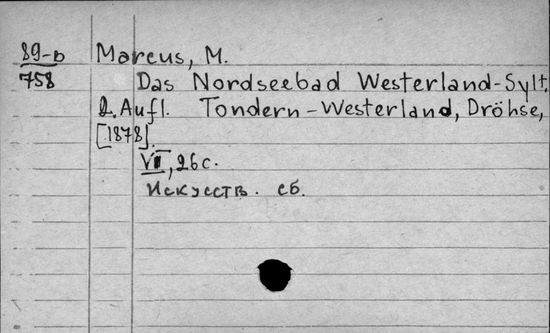 89-b Marcus, M.
758 Das Nordseebad Westerland-Sylt.
2. Aufl. Tondern-Westerland, Dröhse,
[1878].
VII, 26 с.
Искусств. сб.